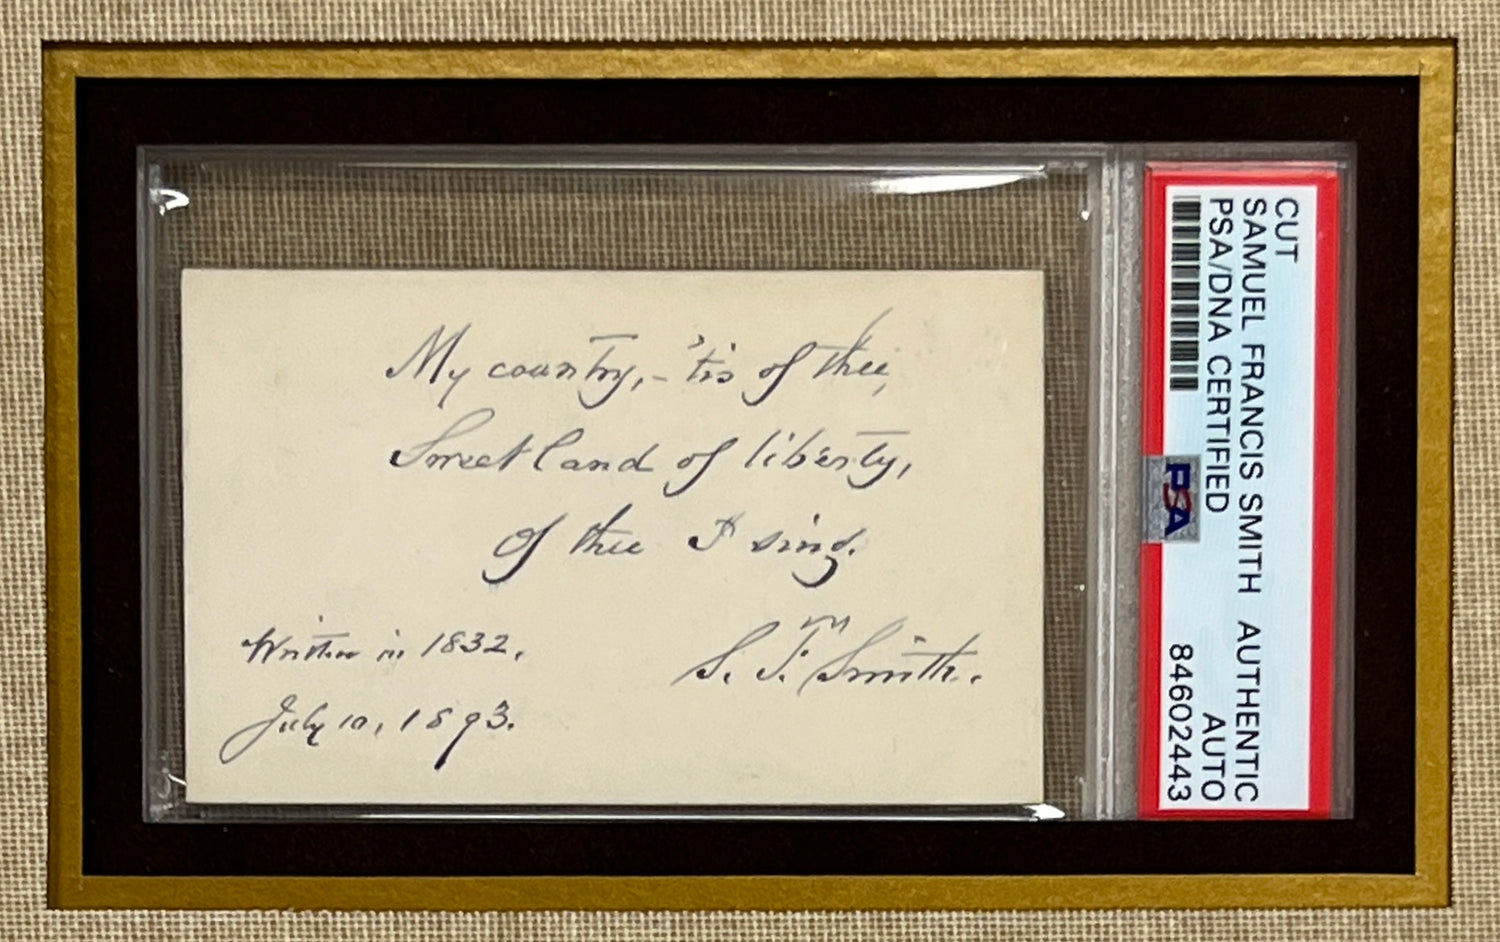 My country, - 'tis of thee,
Sweet land of liberty,
Of thee I sing.
Written in 1832.
S. F. Smith.
July 10, 1893.
CUT
SAMUEL FRANCIS SMITH AUTHENTIC
PSA/DNA CERTIFIED AUTO
84602443
PSA